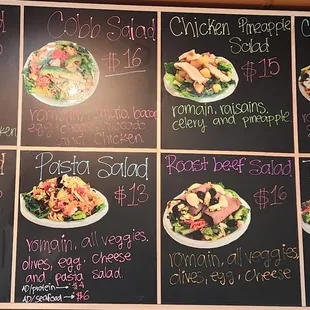 Cobb Salad
$16
romain, tomato, bacon
egg, chez, avocado
and Chicken
Chicken Pineapple
Salad
$15
romain, raisains,
celery, and pineapple
Pasta Salad
$13
romain, all veggies,
olives, egg, cheese
and pasta salad.
AD/protein → $4
AD/seafood → $6
Roast beef Salad
$16
romain, all veggies,
olives, egg, cheese
Chicken